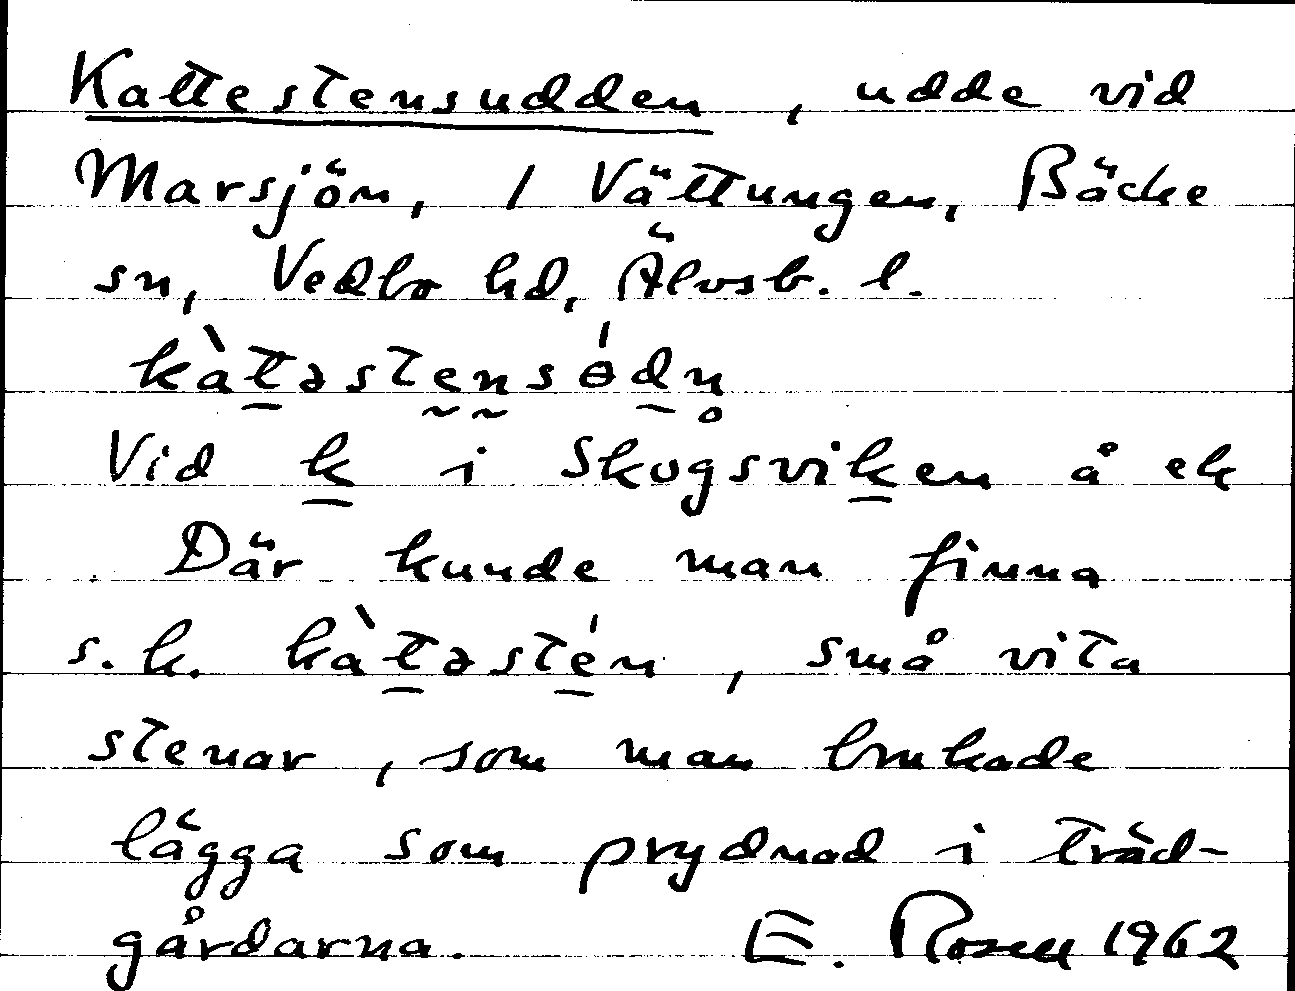 Kattestensudden, udde vid
Marsjön, 1 Vättungen, Bäcke
sn, Vedbo hd, Älvsb. l.
kàt̠əstḛn̰sɵ́d̠n̥
Vid k̲ i Skogsvik̲en å ek
Där kunde man finna
s.k. kàt̠əst̠én, små vita
stenar, som man brukade
lägga som prydnad i träd-
gårdarna. E. Rosell 1962